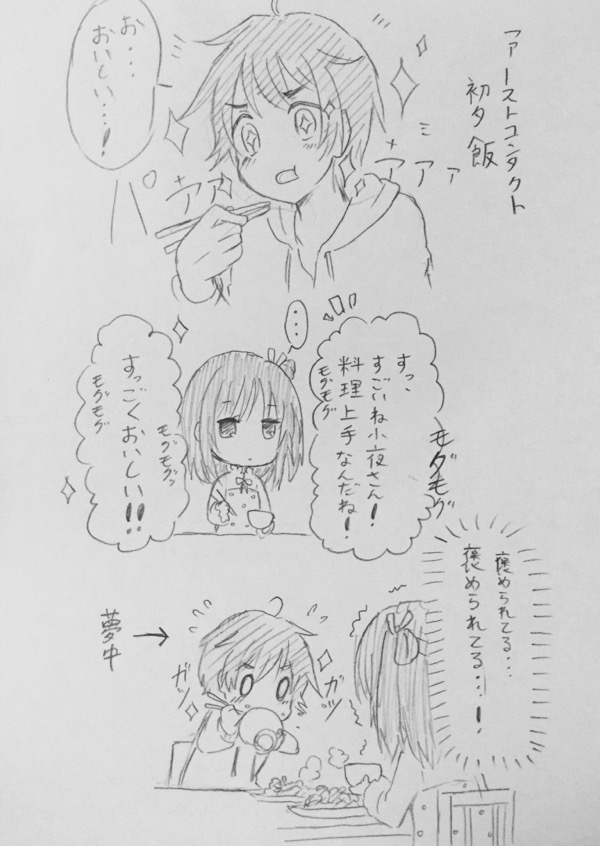 ファーストコンタクト
初夕飯
お・・・
おいしい・・・!
ミ
パァァァァ
すっ、
すごいね小夜さん!
料理上手なんだね!
モグモグ
モグモグ
・・・
すっごくおいしい!!
モグモグッ
モグモグ
褒められてる・・・
褒められてる・・・!
夢中
ガッ
ガツッ